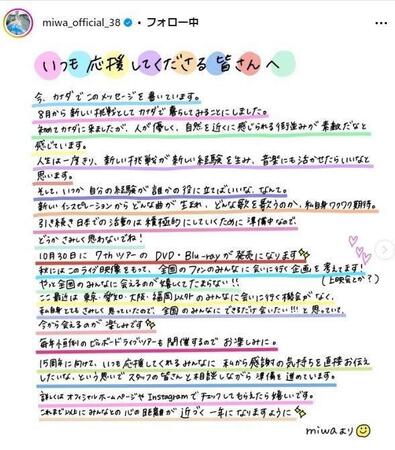 miwa_official_38 • フォロー中
いつも応援してくださる皆さんへ
今、カナダでこのメッセージを書いています。
8月から新しい挑戦としてカナダで暮らしてみることにしました。
初めてカナダに来ましたが、人が優しく、自然を近くに感じられる街並みが素敵だなと
感じています。
人生は一度きり、新しい挑戦が新しい経験を生み、音楽にも活かせたらいいなと
思います。
そして、いつか自分の経験が誰かの役に立てばいいな、なんて。
新しいインスピレーションからどんな曲が生まれ、どんな歌を歌うのか、私自身ワクワク期待。
引き続き日本での活動は積極的にしていくために準備中なので、
どうかさみしく思わないでね！
10月30日に7thツアーのDVD・Blu-rayが発売になります
秋にはこのライブ映像をもって、全国のファンのみんなに会いに行く企画を考えてます！
(上映会とか？)
やっと全国のみんなに会えるのが嬉しくてたまらない!!
ここ最近は東京・愛知・大阪・福岡以外のみんなに会いに行く機会がなく、
私自身とてもさみしく思っていたので、全国のみんなにできるだけ会いたい!!!と思っていて、
今から会えるのが楽しみです
毎年恒例のビルボードライブツアーも開催するのでお楽しみに。
15周年に向けて、いつも応援してくれるみんなに私から感謝の気持ちを直接お伝え
したいな、という思いでスタッフの皆さんと相談しながら準備を進めています。
詳しくはオフィシャルホームページやInstagramでチェックしてもらえたら嬉しいです。
これまで以上にみんなとの心の距離が近づく一年になりますように
miwaより